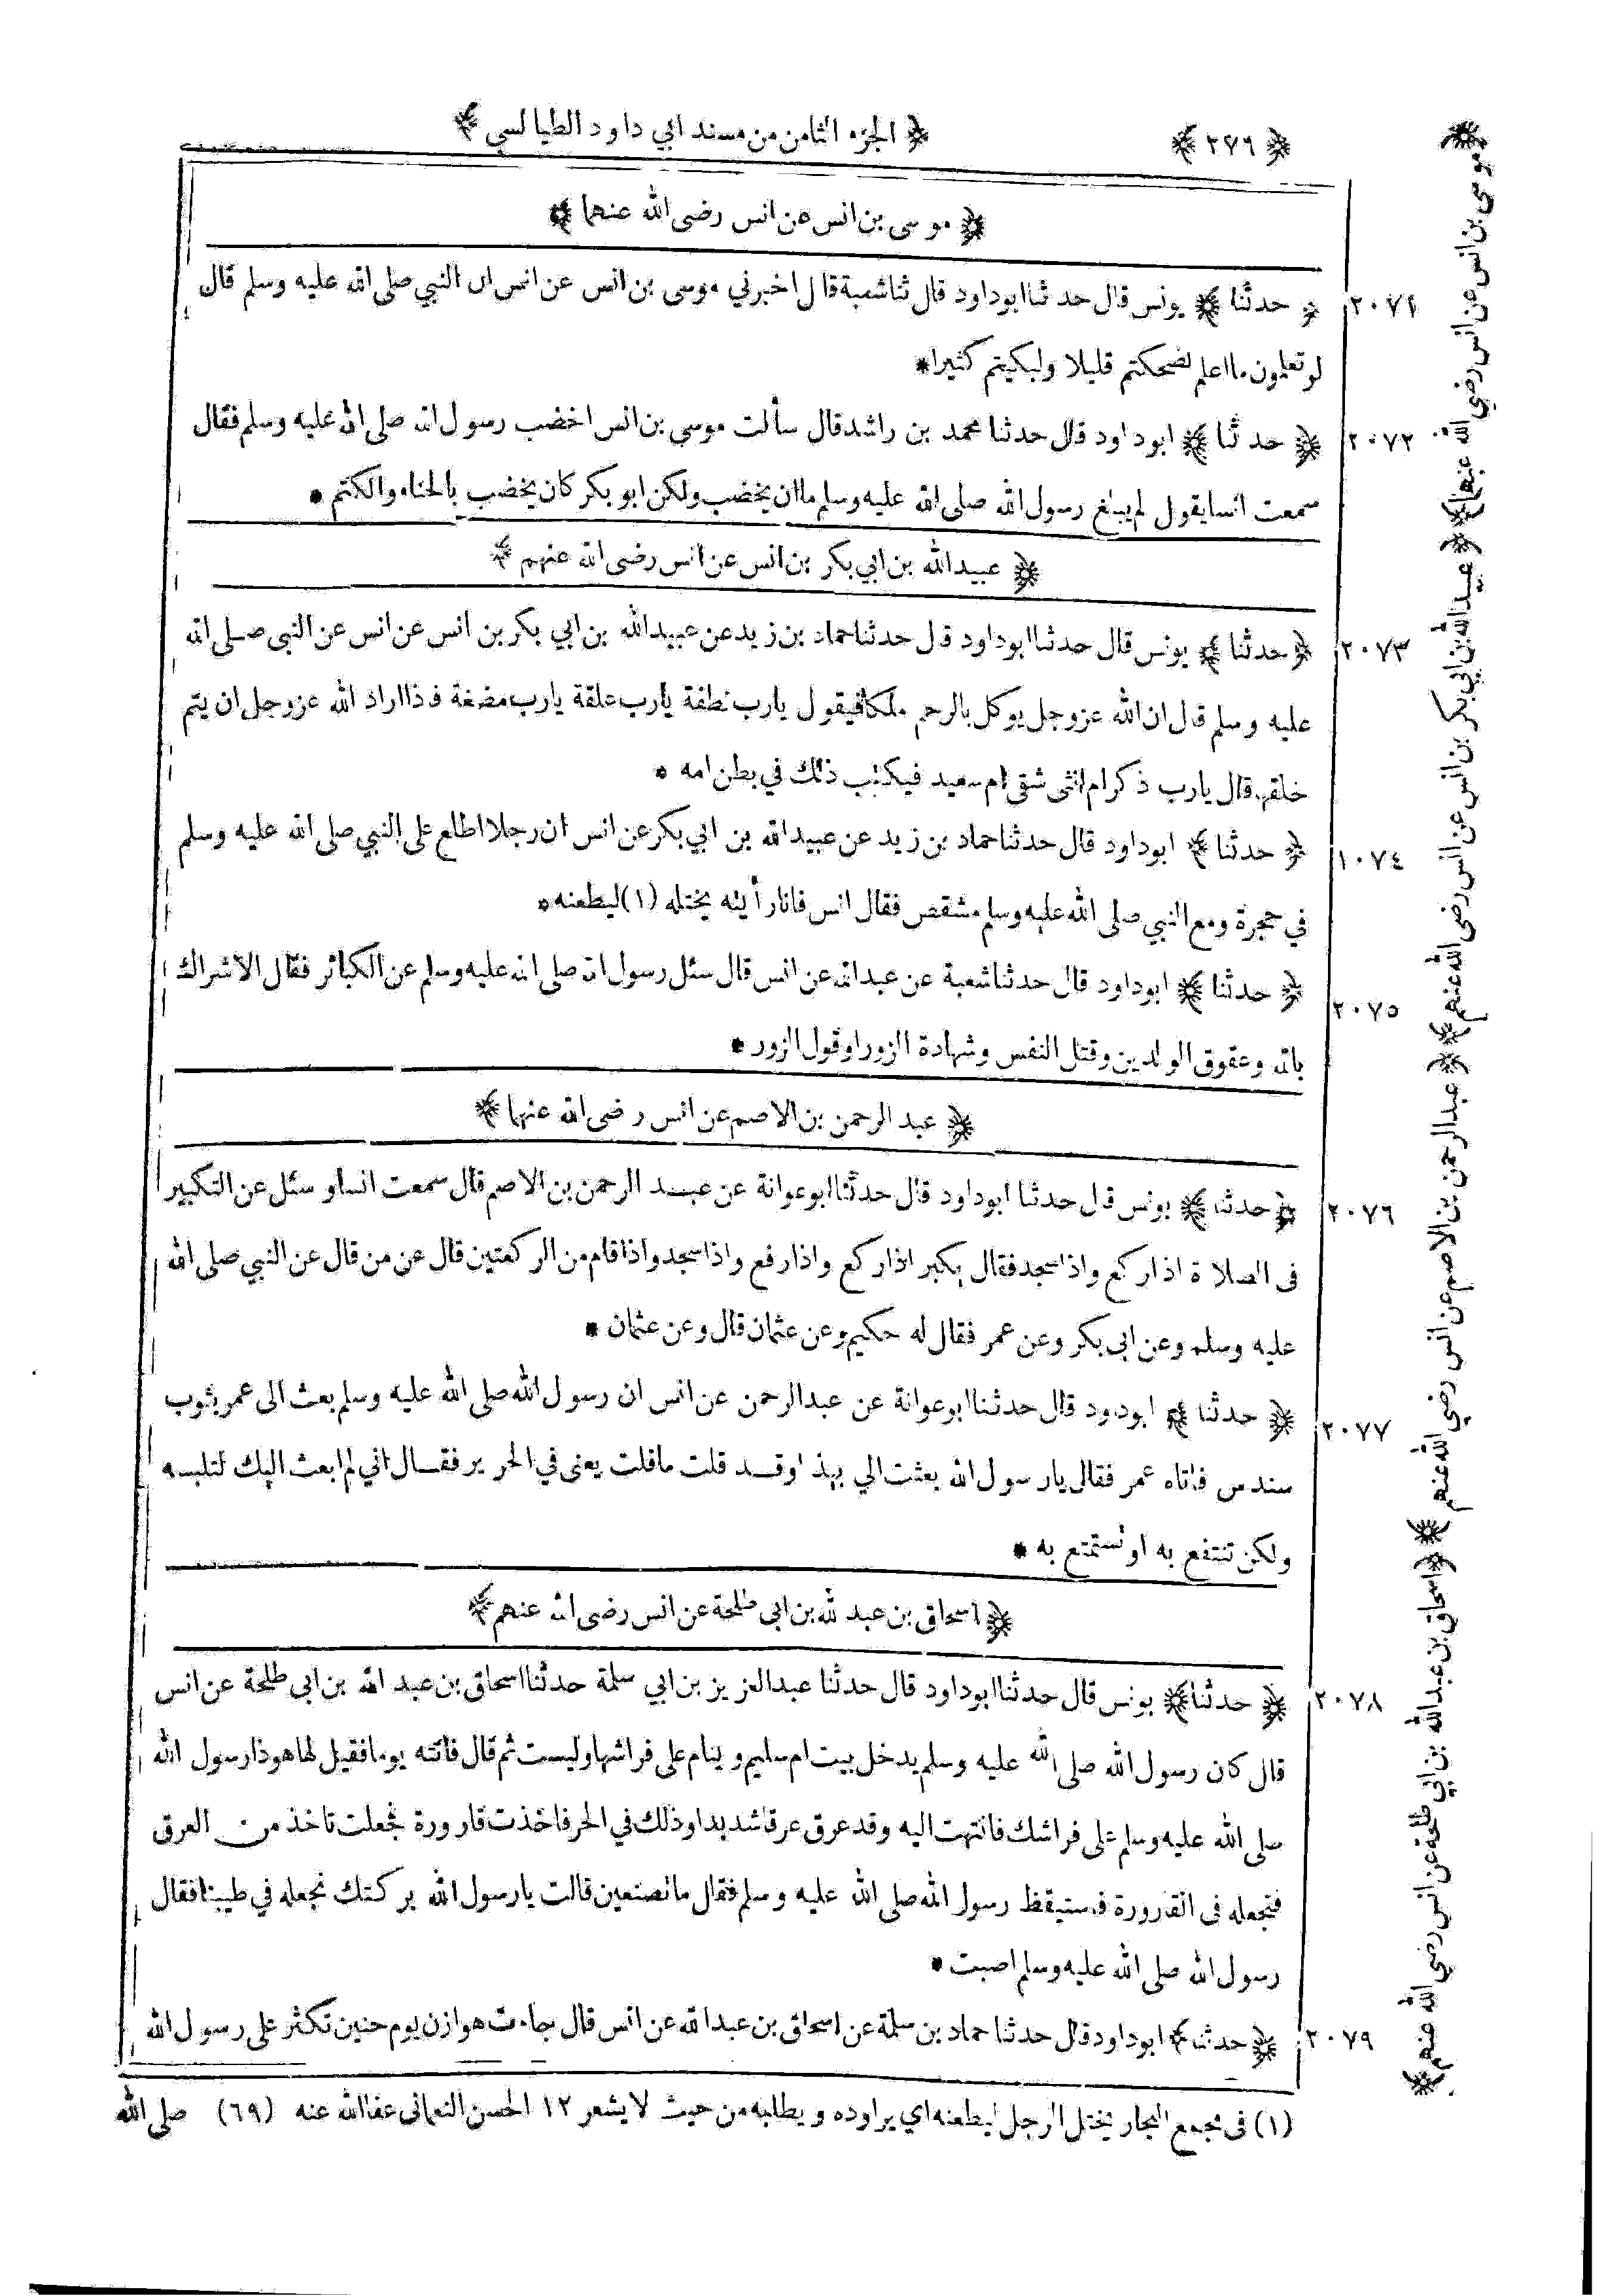 ﴿ الجزء الثامن من مسند ابي داود الطيالسي ﴾
﴿ ٢٧٦ ﴾
﴿ موسى بن انس عن انس رضى الله عنهما ﴾
٢٠٧١ ﴿ حدثنا ﴾ يونس قال حدثنا ابو داود قال ثنا شعبة قال اخبرني موسى بن انس عن انس ان النبي صلى الله عليه وسلم قال
لو تعلمون ما اعلم لضحكتم قليلا ولبكيتم كثيرا *
٢٠٧٢ ﴿ حدثنا ﴾ ابو داود قال حدثنا محمد بن راشد قال سألت موسى بن انس اخضب رسول الله صلى الله عليه وسلم فقال
سمعت انسا يقول لم يبلغ رسول الله صلى الله عليه وسلم ما ان يخضب ولكن ابو بكر كان يخضب بالحناء والكتم *
﴿ عبيد الله بن ابي بكر بن انس عن انس رضى الله عنهم ﴾
٢٠٧٣ ﴿ حدثنا ﴾ يونس قال حدثنا ابو داود قال حدثنا حماد بن زيد عن عبيد الله بن ابي بكر بن انس عن انس عن النبى صلى الله
عليه وسلم قال ان الله عز وجل يوكل بالرحم ملكا فيقول يارب نطفة يارب علقة يارب مضغة فاذا اراد الله عز وجل ان يتم
خلقها قال يارب ذكر ام انثى شقى ام سعيد فيكتب ذلك في بطن امه *
١٠٧٤ ﴿ حدثنا ﴾ ابو داود قال حدثنا حماد بن زيد عن عبيد الله بن ابي بكر عن انس ان رجلا اطلع على النبي صلى الله عليه وسلم
في حجرة ومع النبي صلى الله عليه وسلم مشقص فقال انس فانا رأيته يختله (١) ليطعنه *
٢٠٧٥ ﴿ حدثنا ﴾ ابو داود قال حدثنا شعبة عن عبد الله عن انس قال سئل رسول الله صلى الله عليه وسلم عن الكبائر فقال الاشراك
بالله وعقوق الوالدين وقتل النفس وشهادة الزور او قول الزور *
﴿ عبد الرحمن بن الاصم عن انس رضى الله عنهما ﴾
٢٠٧٦ ﴿ حدثنا ﴾ يونس قال حدثنا ابو داود قال حدثنا ابو عوانة عن عبد الرحمن بن الاصم قال سمعت انسا وسئل عن التكبير
فى الصلاة اذا ركع واذا سجد فقال يكبر اذا ركع واذا رفع واذا سجد واذا قام من الركعتين قال عن من قال عن النبي صلى الله
عليه وسلم وعن ابى بكر وعن عمر فقال له حكيم وعن عثمان قال وعن عثمان *
٢٠٧٧ ﴿ حدثنا ﴾ ابو داود قال حدثنا ابو عوانة عن عبد الرحمن عن انس ان رسول الله صلى الله عليه وسلم بعث الى عمر بثوب
سندس فاتاه عمر فقال يارسول الله بعثت الي بهذا وقد قلت ما قلت يعنى في الحرير فقال اني لم ابعث اليك لتلبسه
ولكن تنتفع به او تستمتع به *
﴿ اسحاق بن عبد الله بن ابى طلحة عن انس رضى الله عنهم ﴾
٢٠٧٨ ﴿ حدثنا ﴾ يونس قال حدثنا ابو داود قال حدثنا عبد العزيز بن ابي سلمة حدثنا اسحاق بن عبد الله بن ابى طلحة عن انس
قال كان رسول الله صلى الله عليه وسلم يدخل بيت ام سليم وينام على فراشها وليست ثم قال فاتته يوما فقيل لها هوذا رسول الله
صلى الله عليه وسلم على فراشك فانتهت اليه وقد عرق عرقا شديدا وذلك في الحر فاخذت قارورة فجعلت تاخذ من العرق
فتجعله فى القارورة فاستيقظ رسول الله صلى الله عليه وسلم فقال ما تصنعين قالت يارسول الله بركتك نجعله في طيبنا فقال
رسول الله صلى الله عليه وسلم اصبت *
٢٠٧٩ ﴿ حدثنا ﴾ ابو داود قال حدثنا حماد بن سلمة عن اسحاق بن عبد الله عن انس قال جاءت هوازن يوم حنين تكثر على رسول الله
(١) فى مجمع البحار يختل الرجل ليطعنه اي يراوده ويطلبه من حيث لا يشعر ١٢ الحسن النعمانى عفا الله عنه (٦٩) صلى الله
﴿ موسى بن انس عن انس رضي الله عنهما ﴾ ﴿ عبيد الله بن ابي بكر بن انس عن انس رضى الله عنهم ﴾ ﴿ عبد الرحمن بن الاصم عن انس رضي الله عنهم ﴾ ﴿ اسحاق بن عبد الله بن ابي طلحة عن انس رضي الله عنهم ﴾